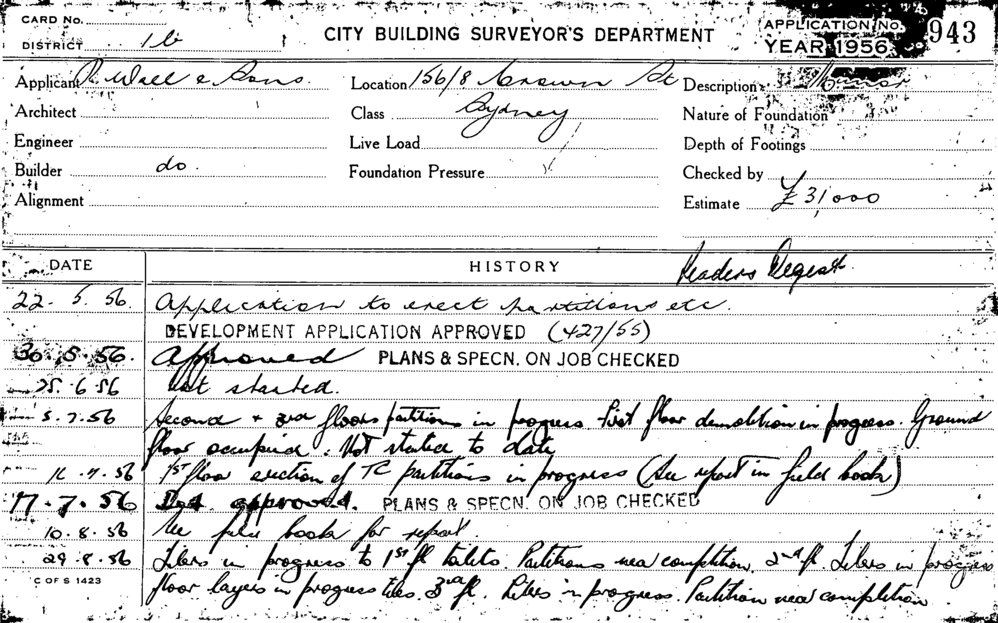 CARD No.
DISTRICT 1b
CITY BUILDING SURVEYOR'S DEPARTMENT
APPLICATION No. 943
YEAR 1956
Applicant R. Wall & Sons. Location 156/8 Crown St Description Minor
Architect Class Sydney Nature of Foundation
Engineer Live Load Depth of Footings
Builder do. Foundation Pressure Checked by
Alignment Estimate £31,000
DATE HISTORY Readers Digest.
22. 5. 56. Application to erect partitions etc
DEVELOPMENT APPLICATION APPROVED (427/55)
30.5.56. Approved PLANS & SPECN. ON JOB CHECKED
25.6.56 Not started.
5.7.56 Second + 3rd floors partitions in progress. First floor demolition in progress. Ground
floor occupied. Not started to date
1st floor erection of TC partitions in progress (See report in field book)
17.7.56 approved. PLANS & SPECN. ON JOB CHECKED
10.8.56 See field book for report.
29.8.56 Tilers in progress to 1st fl toilets. Partitions near completion. 2nd fl. Tilers in progress
C OF S 1423
floor layers in progress tiles. 3rd fl. Tilers in progress. Partition near completion